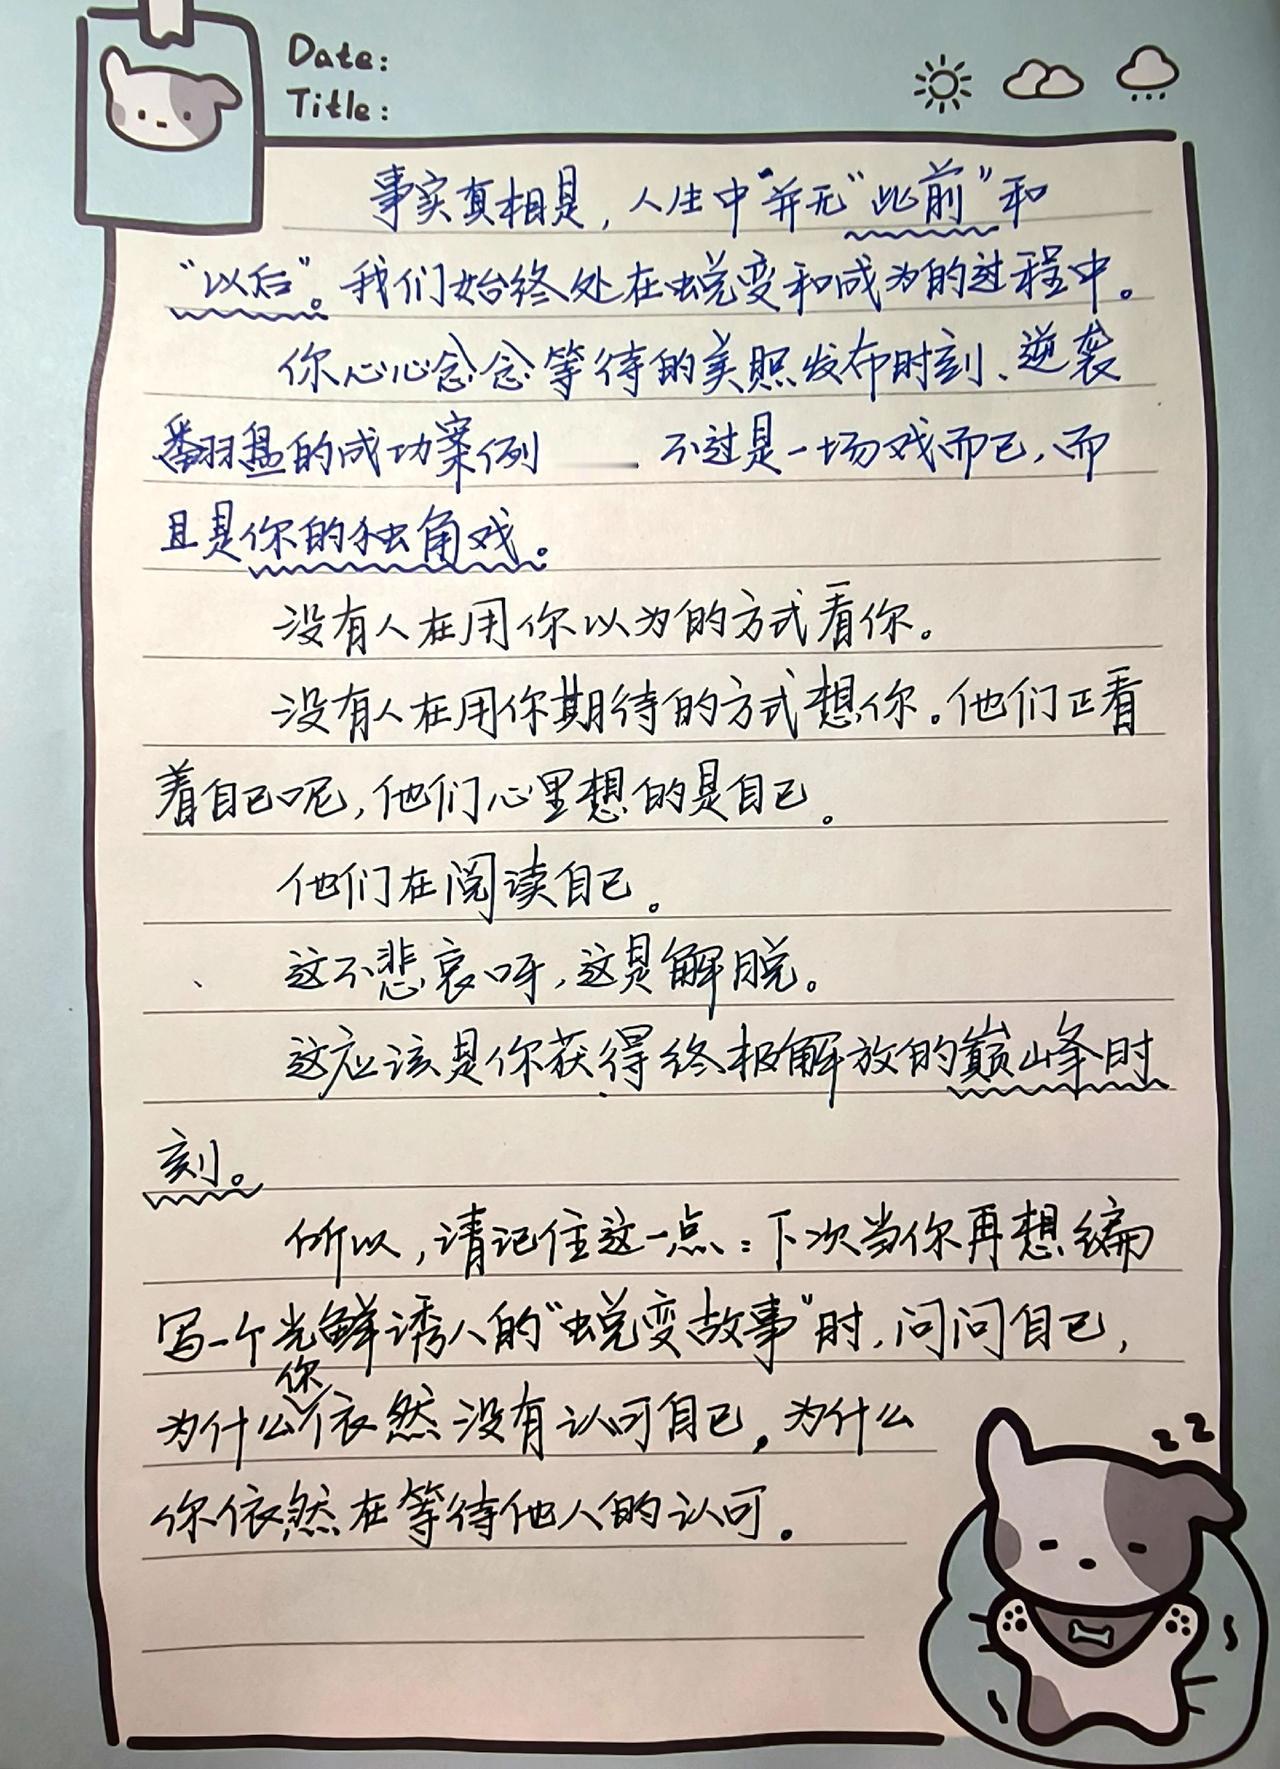 Date:
Title:
事实真相是，人生中“并无“此前”和
“以后”。我们始终处在蜕变和成为的过程中。
你心心念念等待的美照发布时刻、逆袭
翻盘的成功案例 —— 不过是一场戏而已，而
且是你的独角戏。
没有人在用你以为的方式看你。
没有人在用你期待的方式想你。他们正看
着自己呢，他们心里想的是自己。
他们在阅读自己。
、这不悲哀呀，这是解脱。
这应该是你获得终极解放的巅峰时
刻。
所以，请记住这一点：下次当你再想编
写一个光鲜诱人的“蜕变故事”时，问问自己，
为什么你依然没有认可自己，为什么
你依然在等待他人的认可。
zz